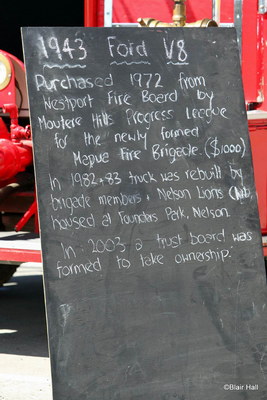 1943 Ford V8
Purchased 1972 from
Westport Fire Board by
Moutere Hills Progress League
for the newly formed
Mapua Fire Brigade. ($1000)
In 1982+83 truck was rebuilt by
brigade members + Nelson Lions
housed at Founders Park, Nelson.
In 2003 a trust board was
formed to take ownership.
©Blair Hall